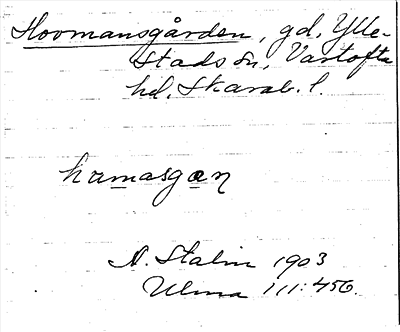 Hovmansgården, gd, Ylle-
stads sn, Vartofta
hd, Skarab. l.
hɑmasgɑɳ
A. Stalin 1903
Ulma 111:456.